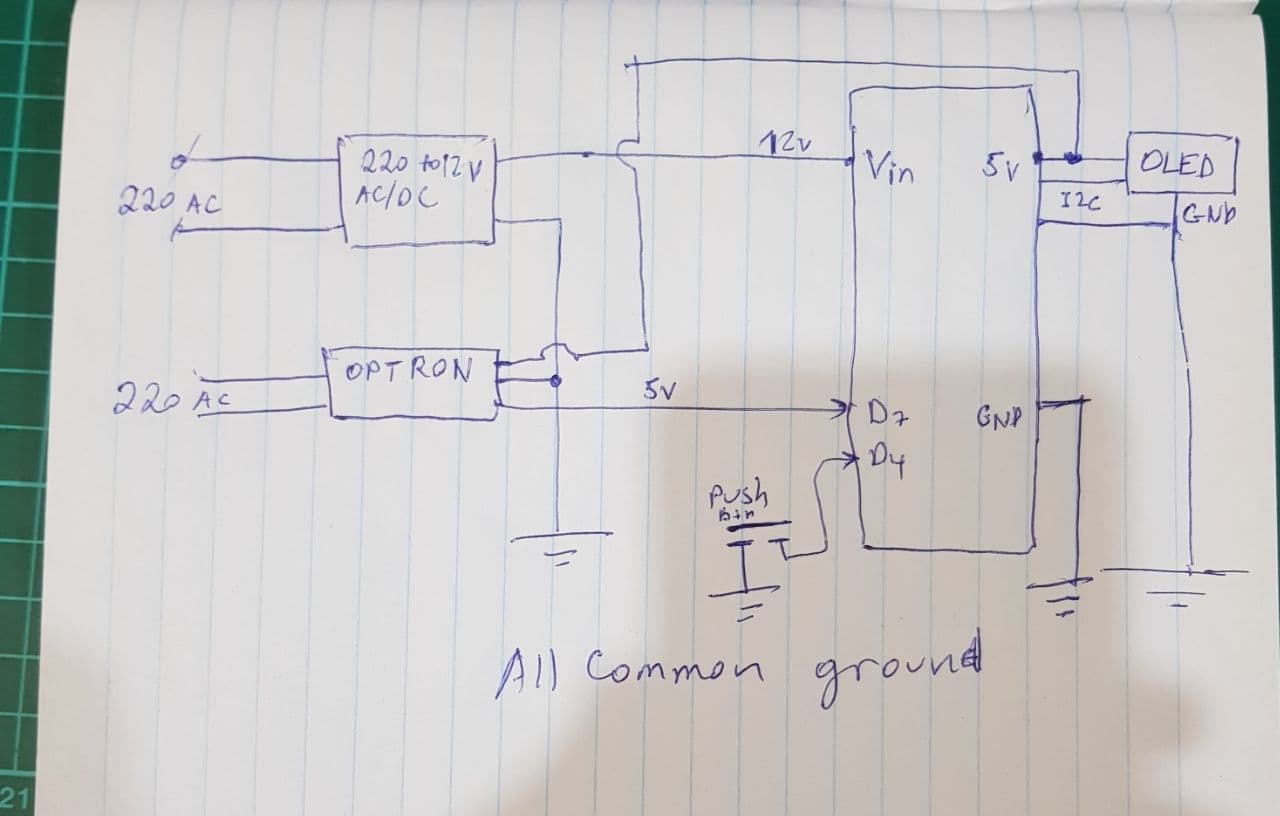 12v
220 to 12 V
AC/DC
Vin
5v
OLED
220 AC
I2C
GND
OPTRON
220 AC
5V
D7
GND
D4
Push
Btn
All Common ground
21